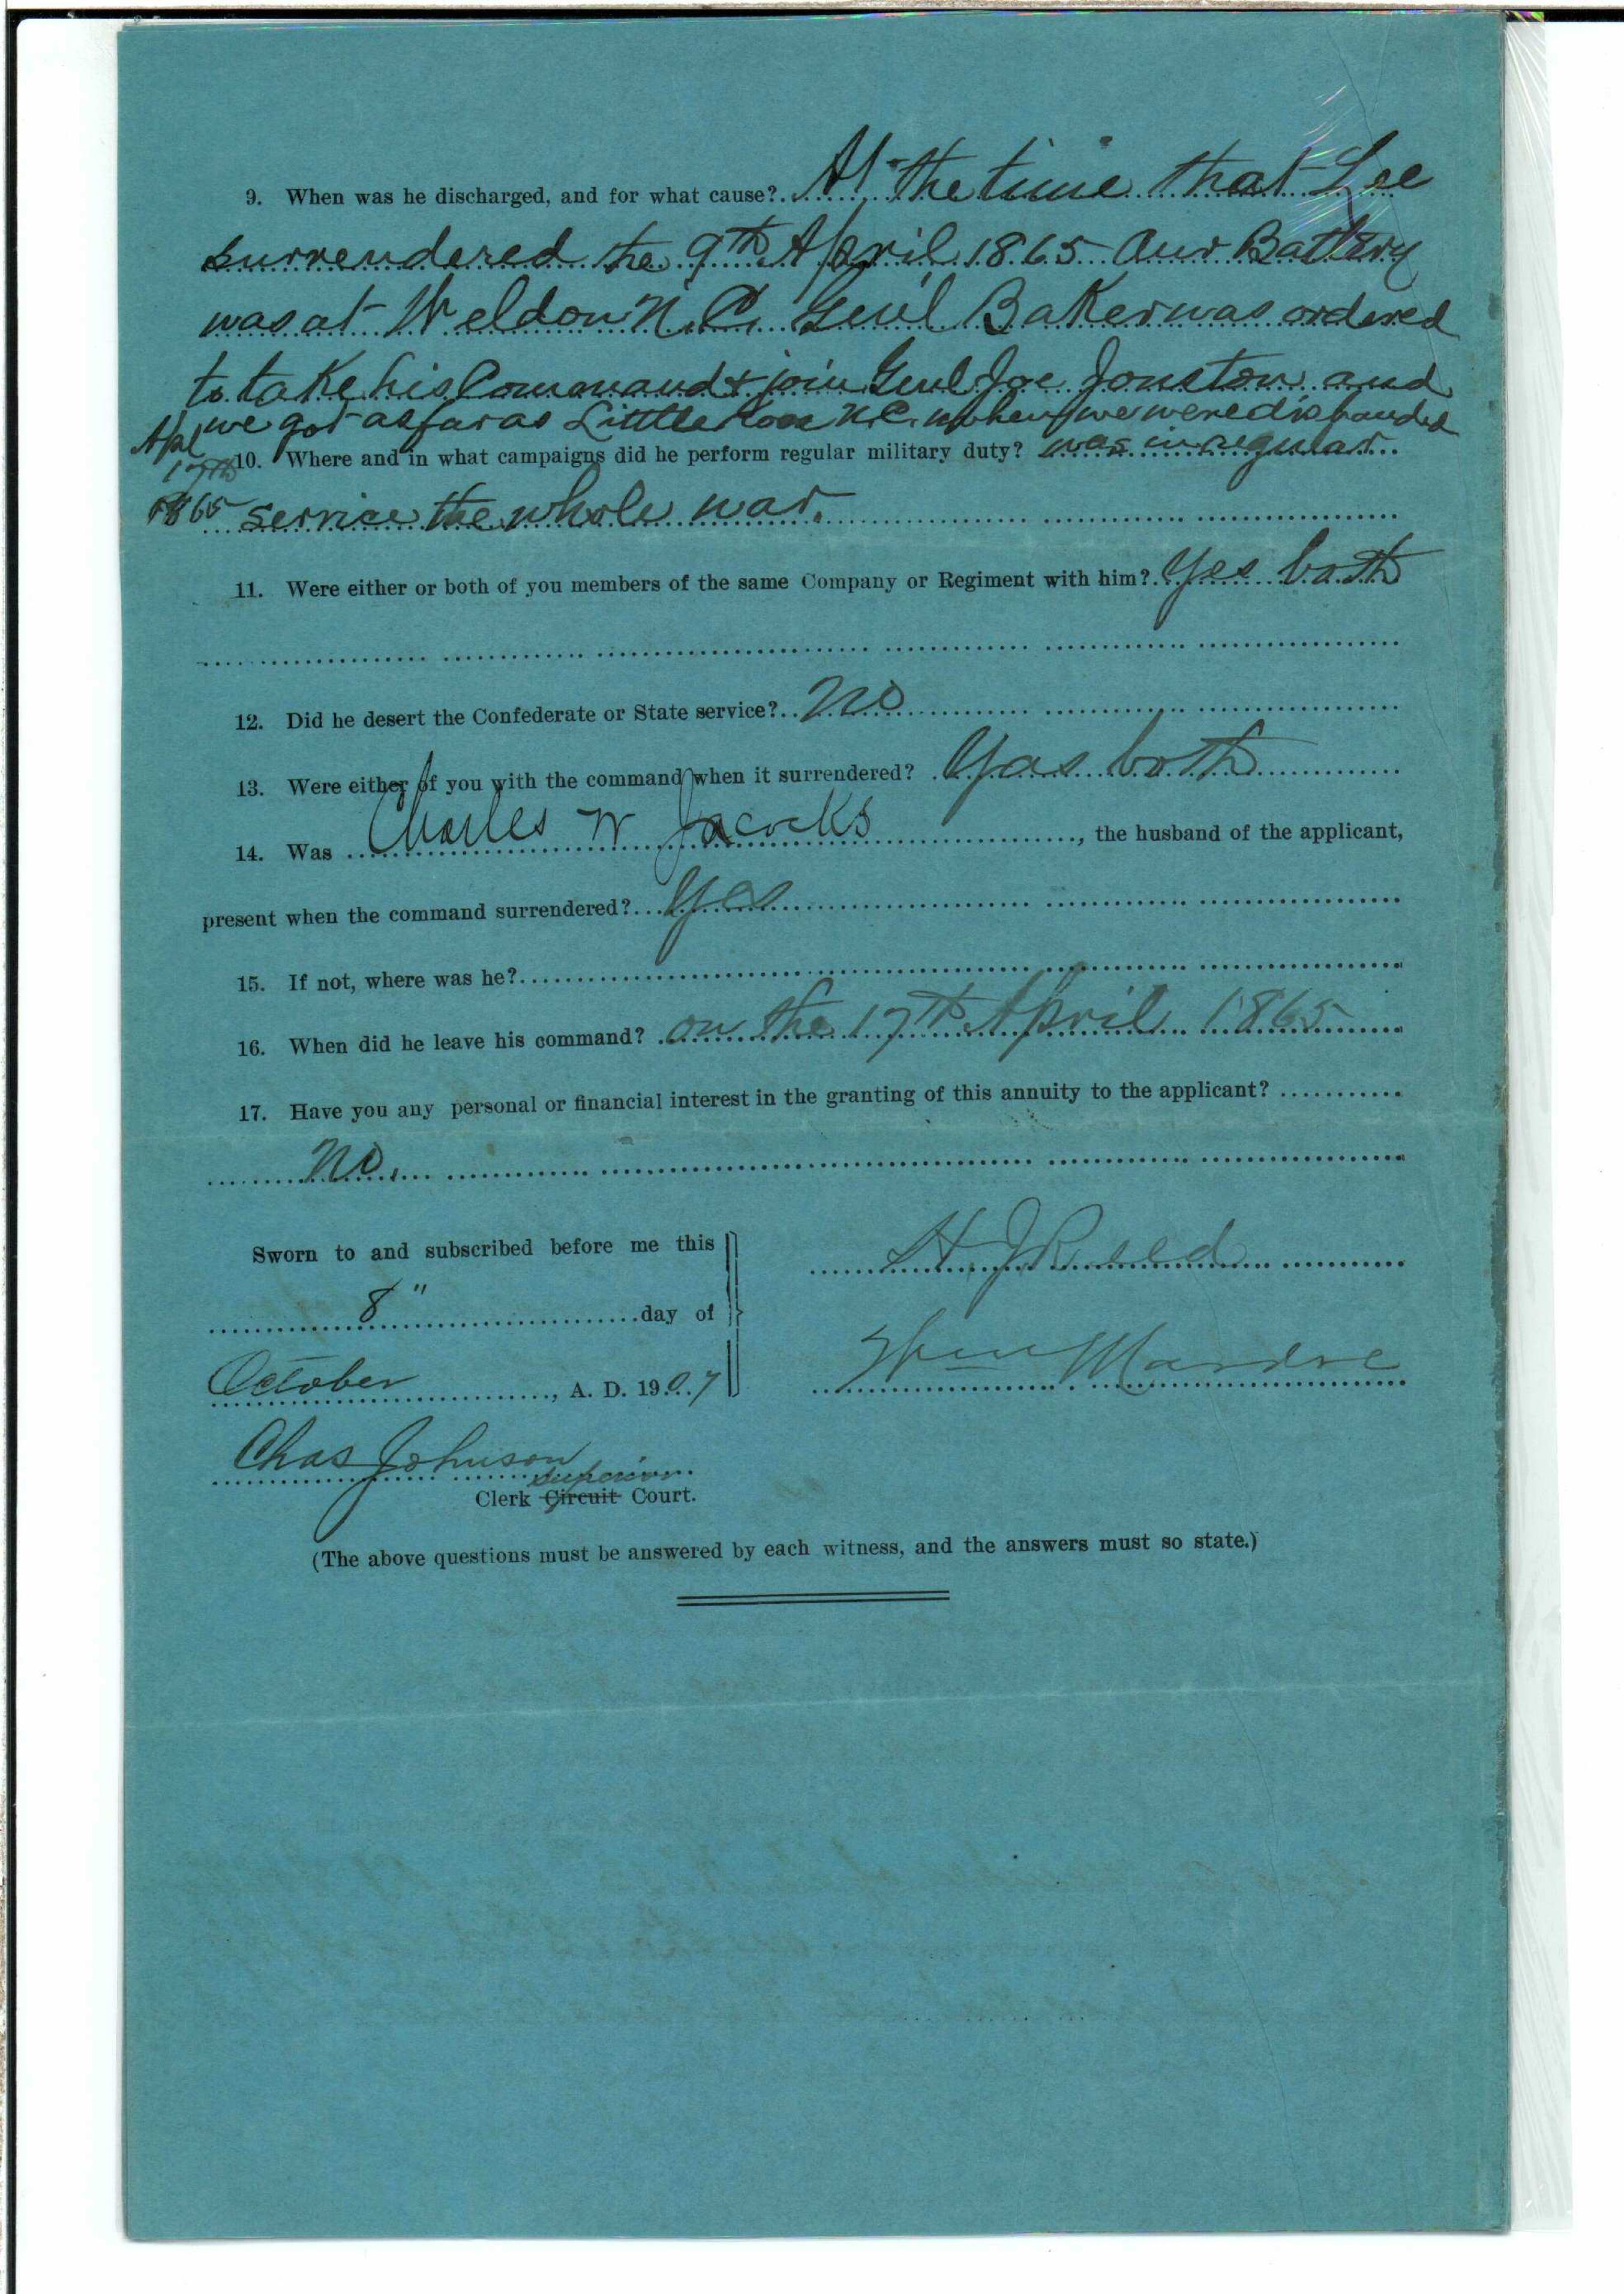 9. When was he discharged, and for what cause? At the time that Lee
surrendered the 9th April 1865 Our Battery
was at Weldon N.C. Genl Baker was ordered
to take his Command & join Genl Joe Jonston and
we got as far as Littleton N.C. when we were disbanded
Apl
17th
1865
10. Where and in what campaigns did he perform regular military duty? was in regular
service the whole war.
11. Were either or both of you members of the same Company or Regiment with him? Yes both
12. Did he desert the Confederate or State service? No
13. Were either of you with the command when it surrendered? Yas both
14. Was Charles W Jacocks, the husband of the applicant,
present when the command surrendered? Yes
15. If not, where was he?
16. When did he leave his command? on the 17th April 1865
17. Have you any personal or financial interest in the granting of this annuity to the applicant?
No.
Sworn to and subscribed before me this
8" day of
October, A. D. 1907
H J Reed
Wm Mardre
Chas Johnson
superior
Clerk Circuit Court.
(The above questions must be answered by each witness, and the answers must so state.)